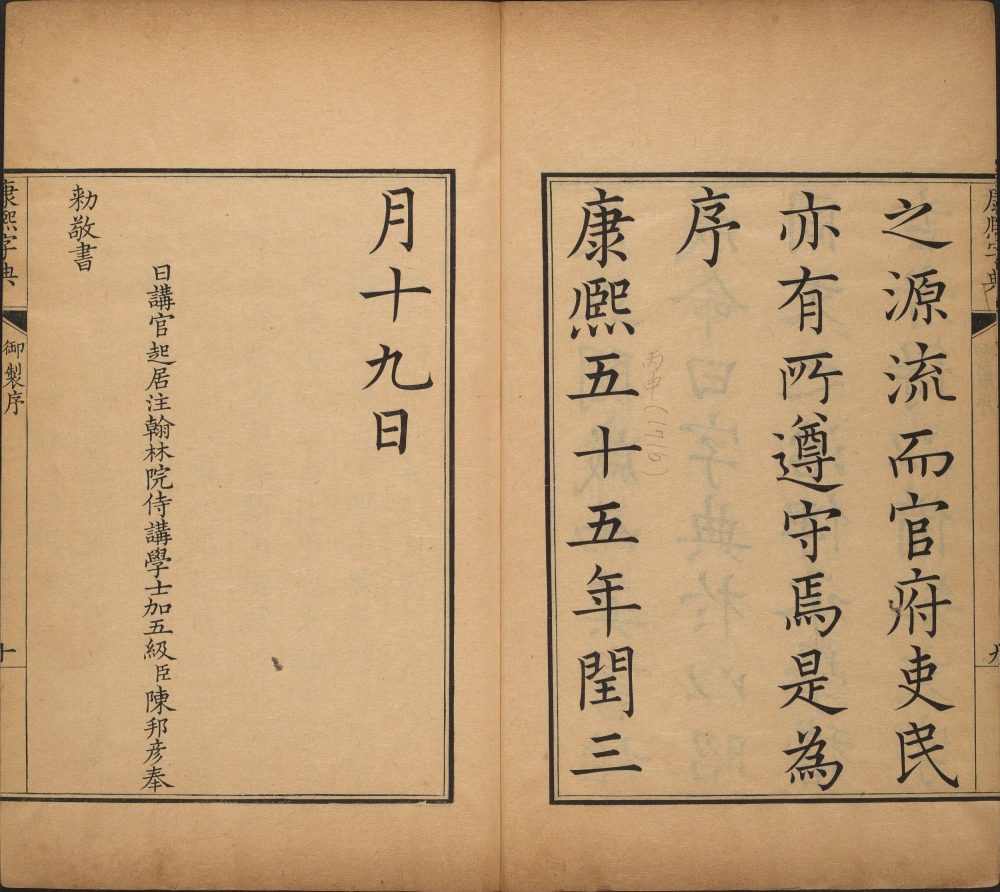 康熙字典
九
之源流而官府吏民
亦有所遵守焉是為
序
丙申(1716)
康熙五十五年閏三
月十九日
日講官起居注翰林院侍講學士加五級臣陳邦彥奉
勅敬書
康熙字典
御製序
十